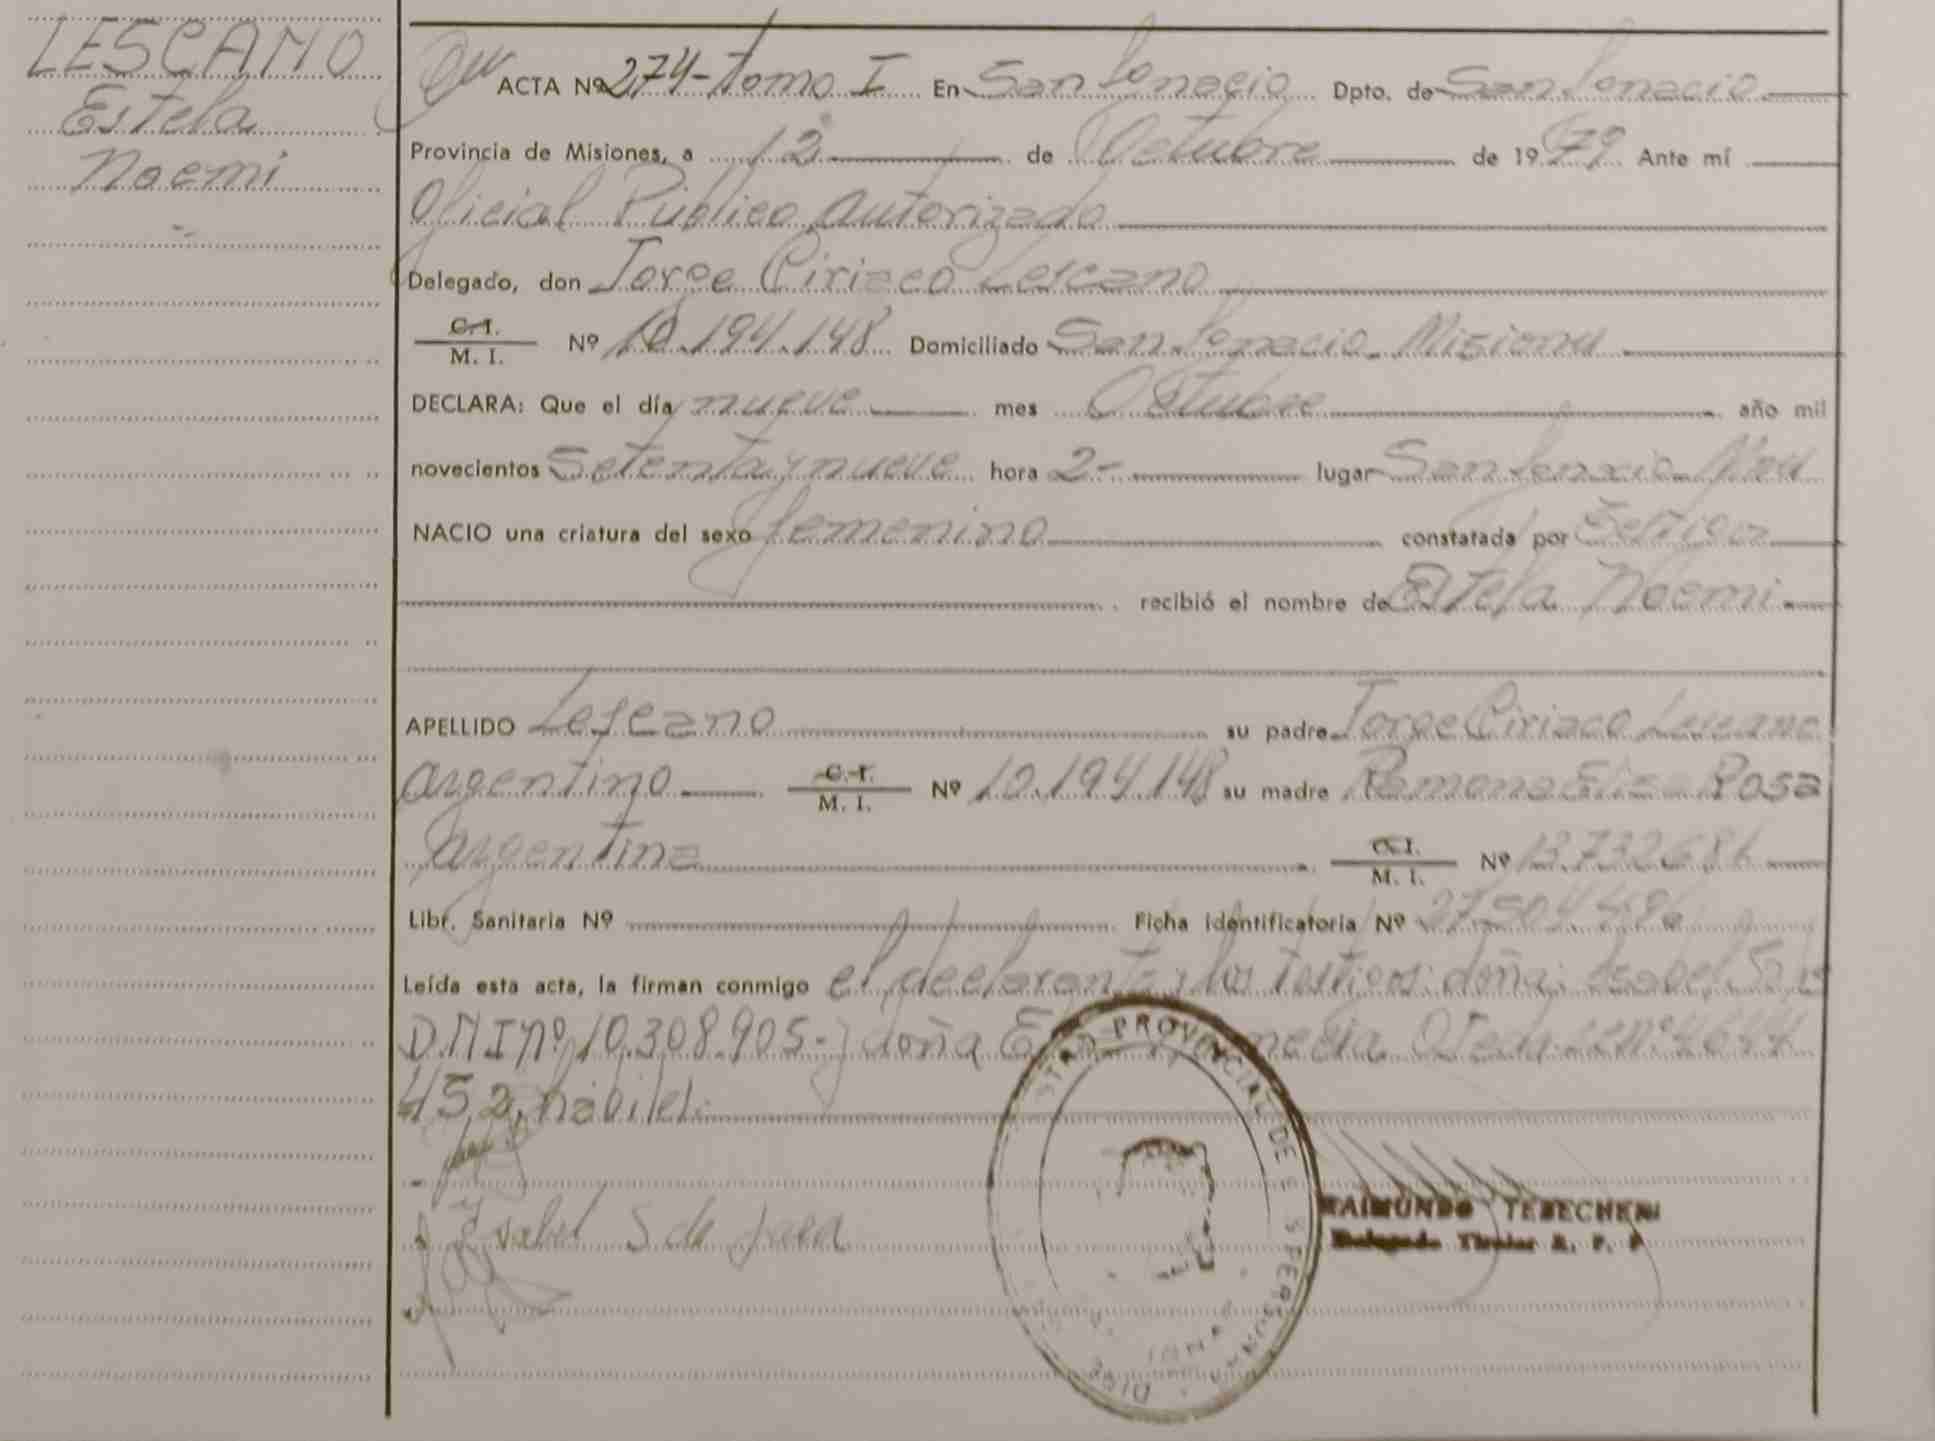 LESCANO
Estela
Noemi
ACTA Nº 274 - tomo I En San Ignacio Dpto. de San Ignacio
Provincia de Misiones, a 12 de Octubre de 1979 Ante mí
Oficial Público Autorizado
Delegado, don Jorge Ciriaco Lescano
C. I.
M. I. Nº 10.194.148 Domiciliado San Ignacio Misiones
DECLARA: Que el día nueve mes Octubre año mil
novecientos Setenta y nueve hora 2- lugar San Ignacio Mnes
NACIO una criatura del sexo femenino constatada por
recibió el nombre de Estela Noemi
APELLIDO Lescano su padre Jorge Ciriaco Lescano
argentino C. I.
M. I. Nº 10.194.148 su madre Ramona Elisa Rosa
argentina C. I.
M. I. Nº 13.732.686
Libr. Sanitaria Nº Ficha identificatoria Nº
Leída esta acta, la firman conmigo el declarante y los testigos: doña: Isabel
D.N.I nº 10.308.905- y doña Ojeda
452, habiles.
Isabel S de
PROVINCIAL DE
RAIMUNDO TEBECHERI
Delegado Titular R. P. P